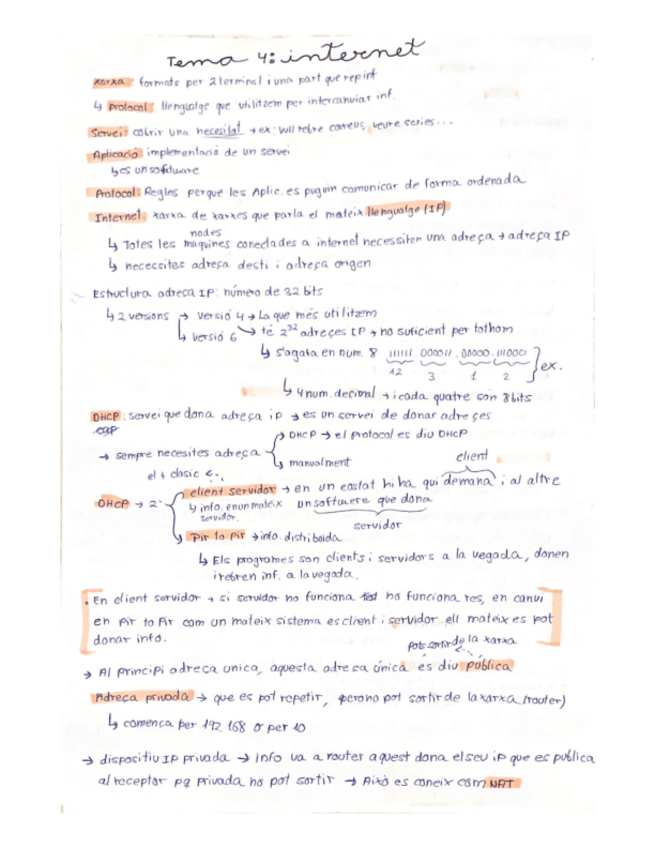 Tema 4: internet
xarxa: formats per 2 terminal i una part que rep inf
↳ Protocol: llenguatge que utilitzem per intercanviar inf.
Servei: cobrir una necesitat → ex: vull rebre correus, veure series...
Aplicació: implementació de un servei
↳ es un software
Protocol: Regles perque les Aplic. es puguin comunicar de forma ordenada
Internet: xarxa de xarxes que parla el mateix llenguatge (IP)
nodes
↳ Totes les maquines conectades a internet necessiten una adreça → adreça IP
↳ necessites adreça desti i adreça origen
Estructura adreca IP: número de 32 bits
↳ 2 versions → versió 4 → la que més utilitzem
↳ versió 6 → té 2³² adreces IP → no suficient per tothom
↳ s'agafa en num. 8 111111.000011.00000.111000 } ex.
12 3 1 2
↳ 4 num. decimal → i cada quatre son 8 bits
DHCP: servei que dona adreça ip → es un servei de donar adreçes
→ sempre necesites adreça → DHCP → el protocol es diu DHCP
↳ manualment
client
el + clasic
DHCP → 2 client servidor → en un costat hi ha qui demana i al altre
↳ info. en un mateix servidor. un software que dona
servidor
Pir to Pir → info. distriboida
↳ Els programes son clients i servidors a la vegada, donen
i rebren inf. a la vegada.
• En client servidor → si servidor no funciona no funciona res, en canvi
en Pir to Pir com un mateix sistema es client i servidor ell mateix es pot
donar info.
Pot sortir de la xarxa
→ Al principi adreca unica, aquesta adresa única es diu pública
Adreca privada → que es pot repetir, pero no pot sortir de la xarxa (router)
↳ comença per 192.168 o per 10
→ dispositiu IP privada → info va a router aquest dona el seu ip que es publica
al receptor pq privada no pot sortir → Això es coneix com NAT